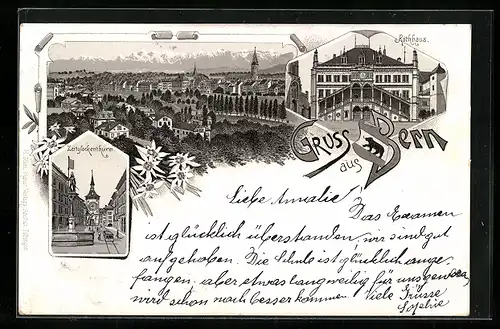 Rathhaus.
Gruss
aus
Bern
Zeitglockenthurm.
Liebe Amalie!
Das Examen
ist glücklich überstanden, wir sind gut
aufgehoben. Die Schule ist glücklich ange-
fangen. aber etwas langweilig für uns
wird schon noch besser kommen. Viele Grüsse
Sophie